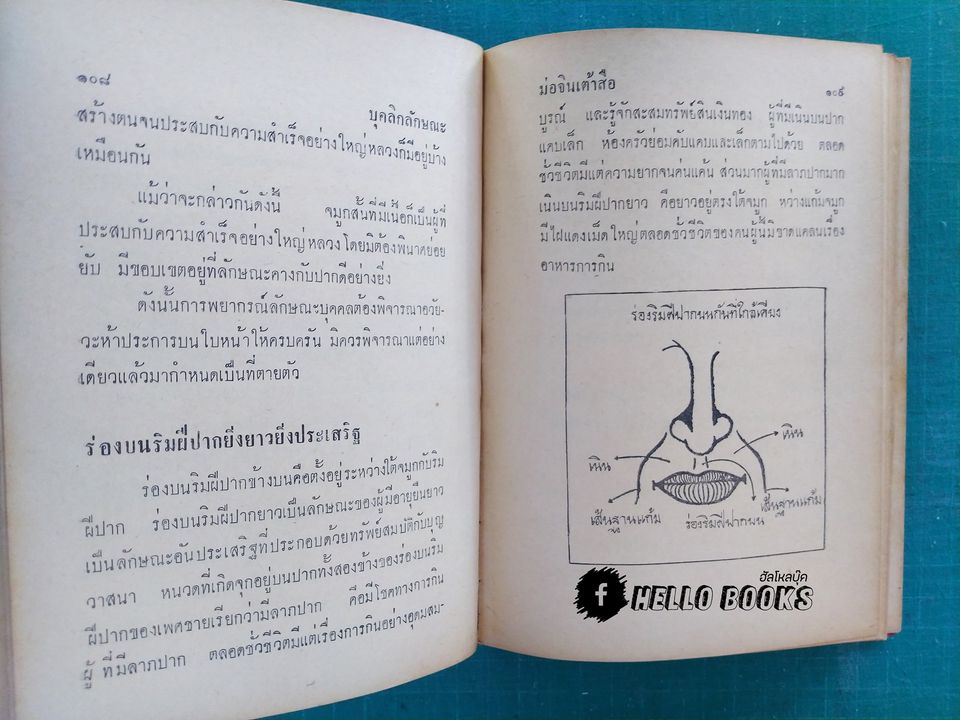 ๑๐๘
บุคลิกลักษณะ
สร้างตนจนประสบกับความสำเร็จอย่างใหญ่หลวงก็มีอยู่บ้าง
เหมือนกัน
แม้ว่าจะกล่าวกันดังนี้ จมูกสั้นที่มีเนื้อก็เป็นผู้ที่
ประสบกับความสำเร็จอย่างใหญ่หลวง โดยมิต้องพินาศย่อย
ยับ มีขอบเขตอยู่ที่ลักษณะคางกับปากดีอย่างยิ่ง
ดังนั้นการพยากรณ์ลักษณะบุคคลต้องพิจารณาอวัย-
วะห้าประการบนใบหน้าให้ครบครัน มิควรพิจารณาแต่อย่าง
เดียวแล้วมากำหนดเป็นที่ตายตัว
ร่องบนริมฝีปากยิ่งยาวยิ่งประเสริฐ
ร่องบนริมฝีปากข้างบนคือตั้งอยู่ระหว่างใต้จมูกกับริม
ฝีปาก ร่องบนริมฝีปากยาวเป็นลักษณะของผู้มีอายุยืนยาว
เป็นลักษณะอันประเสริฐที่ประกอบด้วยทรัพย์สมบัติกับบุญ
วาสนา หนวดที่เกิดจุกอยู่บนปากทั้งสองข้างของร่องบนริม
ฝีปากของเพศชายเรียกว่ามีลาภปาก คือมีโชคทางการกิน
ผู้ที่มีลาภปาก ตลอดชั่วชีวิตมีแต่เรื่องการกินอย่างอุดมสม-
ม่อจินเต้าสือ
๑๐๙
บูรณ์ และรู้จักสะสมทรัพย์สินเงินทอง ผู้ที่มีเนินบนปาก
แคบเล็ก ห้องครัวย่อมคับแคบและเล็กตามไปด้วย ตลอด
ชั่วชีวิตมีแต่ความยากจนค่นแค้น ส่วนมากผู้ที่มีลาภปากมาก
เนินบนริมฝีปากยาว คือยาวอยู่ตรงใต้จมูก หว่างแก้มจมูก
มีไฝแดงเม็ดใหญ่ตลอดชั่วชีวิตของคนผู้นี้มิขาดแคลนเรื่อง
อาหารการกิน
ร่องริมฝีปากบนกับที่ใกล้เคียง
เนิน
เนิน
เส้นฐานแก้ม
ร่องริมฝีปากบน
เส้นฐานแก้ม
ฮัลโหลบุ๊ค
f HELLO BOOKS